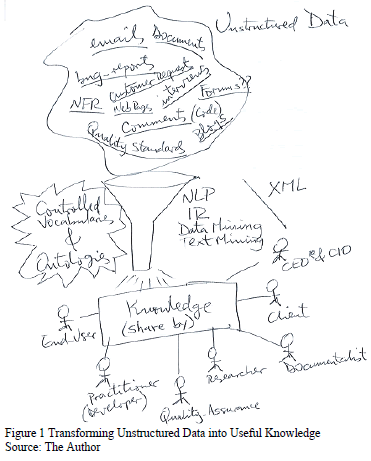 Unstructured Data
emails Document
bug-reports
Customer Request
NFR Web Pags interviews Forums??
Comments (Code)
Quality Standard Blogs
Controlled
Vocabularies
&
Ontologies
NLP
IR
Data Mining
Text Mining
XML
CEO & CIO
Knowledge
(share by)
End User
Client
Practitioner
(Developer)
Quality Assurance
Researcher
Documentalist
Figure 1 Transforming Unstructured Data into Useful Knowledge
Source: The Author